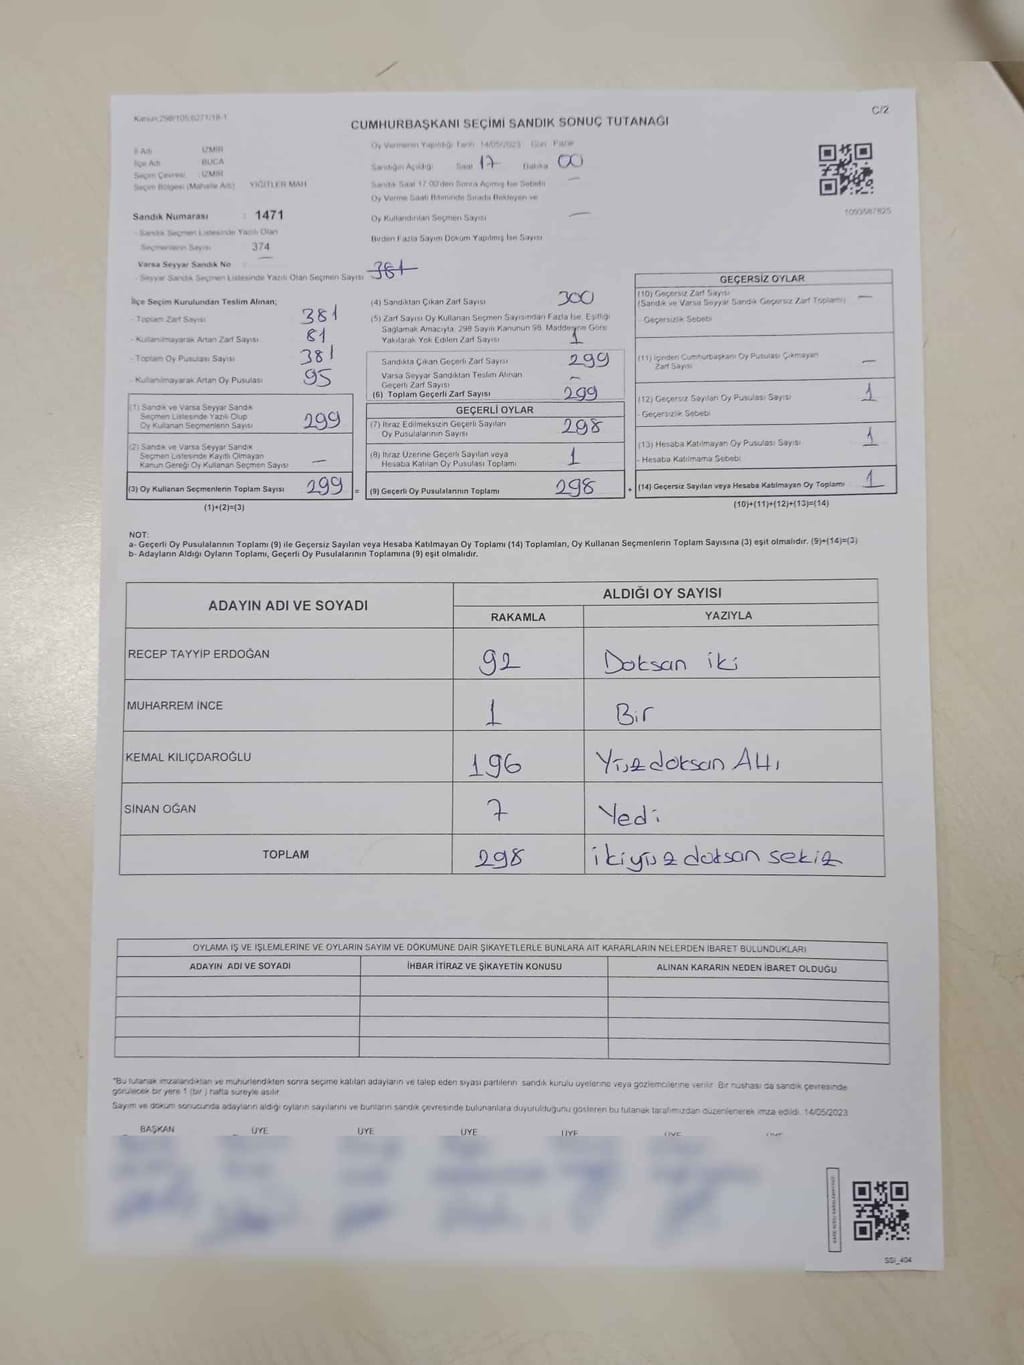 Kanun:298/105,6271/18-1
C/2
CUMHURBAŞKANI SEÇİMİ SANDIK SONUÇ TUTANAĞI
İl Adı : İZMİR
İlçe Adı : BUCA
Seçim Çevresi : İZMİR
Seçim Bölgesi (Mahalle Adı) : YİĞİTLER MAH
Sandık Numarası : 1471
- Sandık Seçmen Listesinde Yazılı Olan
Seçmenlerin Sayısı : 374
Varsa Seyyar Sandık No : —
- Seyyar Sandık Seçmen Listesinde Yazılı Olan Seçmen Sayısı 381
Oy Vermenin Yapıldığı Tarih 14/05/2023 Gün Pazar
Sandığın Açıldığı Saat 17 Dakika 00
Sandık Saat 17:00'den Sonra Açılmış İse Sebebi —
Oy Verme Saati Bitiminde Sırada Bekleyen ve
Oy Kullandırılan Seçmen Sayısı —
Birden Fazla Sayım Döküm Yapılmış İse Sayısı
1093587825
İlçe Seçim Kurulundan Teslim Alınan;
- Toplam Zarf Sayısı 381
- Kullanılmayarak Artan Zarf Sayısı 81
- Toplam Oy Pusulası Sayısı 381
- Kullanılmayarak Artan Oy Pusulası 95
(1) Sandık ve Varsa Seyyar Sandık
Seçmen Listesinde Yazılı Olup
Oy Kullanan Seçmenlerin Sayısı 299
(2) Sandık ve Varsa Seyyar Sandık
Seçmen Listesinde Kayıtlı Olmayan
Kanun Gereği Oy Kullanan Seçmen Sayısı —
(3) Oy Kullanan Seçmenlerin Toplam Sayısı 299 =
(1)+(2)=(3)
(4) Sandıktan Çıkan Zarf Sayısı 300
(5) Zarf Sayısı Oy Kullanan Seçmen Sayısından Fazla İse, Eşitliği
Sağlamak Amacıyla, 298 Sayılı Kanunun 98. Maddesine Göre
Yakılarak Yok Edilen Zarf Sayısı 1
Sandıkta Çıkan Geçerli Zarf Sayısı 299
Varsa Seyyar Sandıktan Teslim Alınan
Geçerli Zarf Sayısı —
(6) Toplam Geçerli Zarf Sayısı 299
GEÇERLİ OYLAR
(7) İtiraz Edilmeksizin Geçerli Sayılan
Oy Pusulalarının Sayısı 298
(8) İtiraz Üzerine Geçerli Sayılan veya
Hesaba Katılan Oy Pusulası Toplamı 1
(9) Geçerli Oy Pusulalarının Toplamı 298 +
GEÇERSİZ OYLAR
(10) Geçersiz Zarf Sayısı
(Sandık ve Varsa Seyyar Sandık Geçersiz Zarf Toplamı) —
- Geçersizlik Sebebi
(11) İçinden Cumhurbaşkanı Oy Pusulası Çıkmayan
Zarf Sayısı —
(12) Geçersiz Sayılan Oy Pusulası Sayısı 1
- Geçersizlik Sebebi
(13) Hesaba Katılmayan Oy Pusulası Sayısı 1
- Hesaba Katılmama Sebebi
(14) Geçersiz Sayılan veya Hesaba Katılmayan Oy Toplamı 1
(10)+(11)+(12)+(13)=(14)
NOT:
a- Geçerli Oy Pusulalarının Toplamı (9) ile Geçersiz Sayılan veya Hesaba Katılmayan Oy Toplamı (14) Toplamları, Oy Kullanan Seçmenlerin Toplam Sayısına (3) eşit olmalıdır. (9)+(14)=(3)
b- Adayların Aldığı Oyların Toplamı, Geçerli Oy Pusulalarının Toplamına (9) eşit olmalıdır.
ADAYIN ADI VE SOYADI ALDIĞI OY SAYISI
RAKAMLA YAZIYLA
RECEP TAYYİP ERDOĞAN 92 Doksan iki
MUHARREM İNCE 1 Bir
KEMAL KILIÇDAROĞLU 196 Yüzdoksan Altı
SİNAN OĞAN 7 Yedi
TOPLAM 298 ikiyüz doksan sekiz
OYLAMA İŞ VE İŞLEMLERİNE VE OYLARIN SAYIM VE DÖKÜMÜNE DAİR ŞİKAYETLERLE BUNLARA AİT KARARLARIN NELERDEN İBARET BULUNDUKLARI
ADAYIN ADI VE SOYADI İHBAR İTİRAZ VE ŞİKAYETİN KONUSU ALINAN KARARIN NEDEN İBARET OLDUĞU
*Bu tutanak imzalandıktan ve mühürlendikten sonra seçime katılan adayların ve talep eden siyasi partilerin sandık kurulu üyelerine veya gözlemcilerine verilir. Bir nüshası da sandık çevresinde
görülecek bir yere 1 (bir) hafta süreyle asılır.
Sayım ve döküm sonucunda adayların aldığı oyların sayılarını ve bunların sandık çevresinde bulunanlara duyurulduğunu gösteren bu tutanak tarafımızdan düzenlenerek imza edildi. 14/05/2023
BAŞKAN ÜYE ÜYE ÜYE ÜYE ÜYE ÜYE
SSİ_404